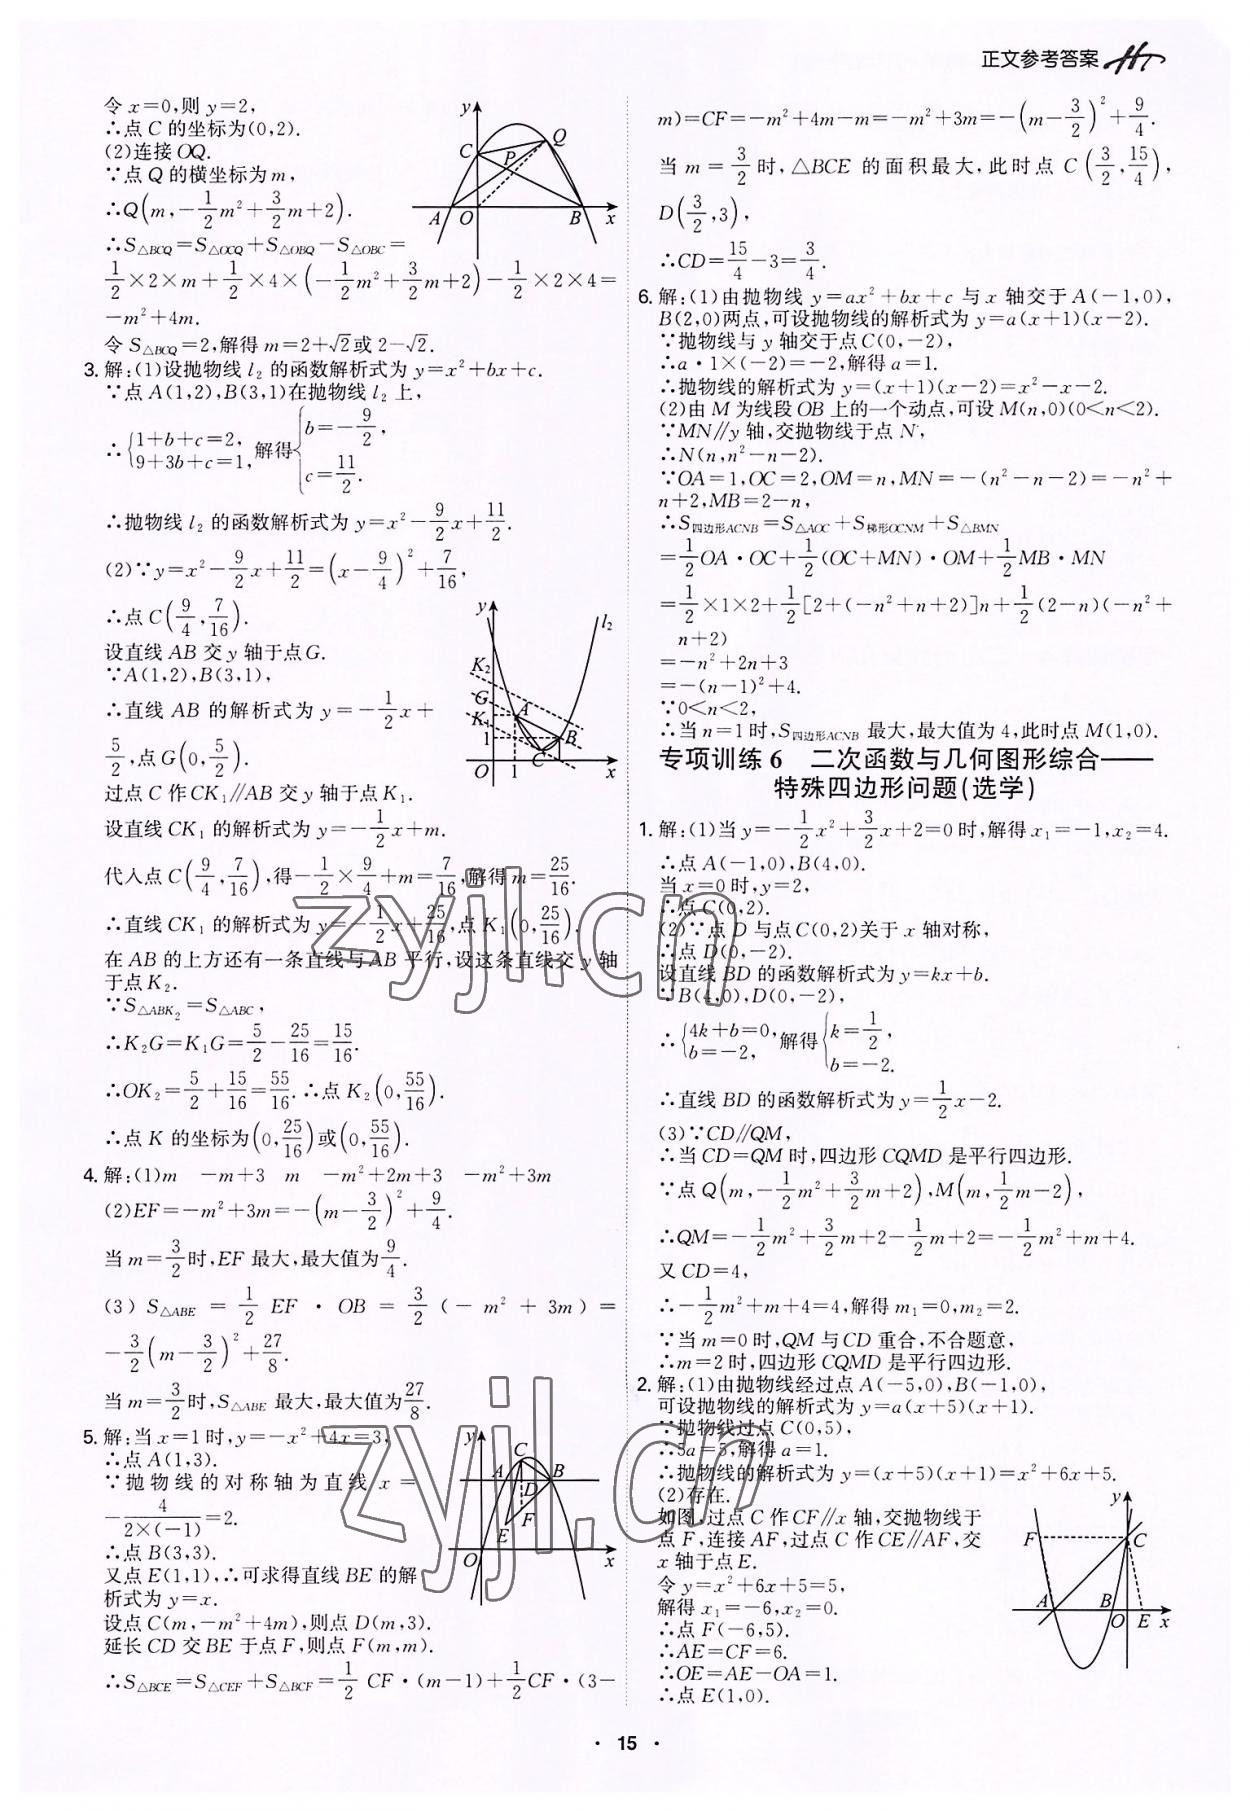 正文参考答案
令 x=0,则 y=2,
∴点 C 的坐标为(0,2).
(2)连接 OQ.
∵点 Q 的横坐标为 m,
∴Q(m,-1/2m²+3/2m+2).
∴S△BCQ=S△OCQ+S△OBQ-S△OBC=
1/2×2×m+1/2×4×(-1/2m²+3/2m+2)-1/2×2×4=
-m²+4m.
令 S△BCQ=2,解得 m=2+√2或 2-√2.
3. 解:(1)设抛物线 l₂ 的函数解析式为 y=x²+bx+c.
∵点 A(1,2),B(3,1)在抛物线 l₂ 上,
∴{1+b+c=2, 9+3b+c=1, 解得{b=-9/2, c=11/2.
∴抛物线 l₂ 的函数解析式为 y=x²-9/2x+11/2.
(2)∵y=x²-9/2x+11/2=(x-9/4)²+7/16,
∴点 C(9/4,7/16).
设直线 AB 交 y 轴于点G.
∵A(1,2),B(3,1),
∴直线 AB 的解析式为 y=-1/2x+
5/2,点 G(0,5/2).
过点 C 作CK₁∥AB 交 y 轴于点 K₁.
设直线 CK₁ 的解析式为 y=-1/2x+m.
代入点 C(9/4,7/16),得-1/2×9/4+m=7/16,解得 m=25/16.
∴直线 CK₁ 的解析式为 y=-1/2x+25/16,点 K₁(0,25/16).
在 AB 的上方还有一条直线与 AB 平行,设这条直线交 y 轴
于点 K₂.
∵S△ABK₂=S△ABC,
∴K₂G=K₁G=5/2-25/16=15/16.
∴OK₂=5/2+15/16=55/16.∴点 K₂(0,55/16).
∴点 K 的坐标为(0,25/16)或(0,55/16).
4. 解:(1)m -m+3 m -m²+2m+3 -m²+3m
(2)EF=-m²+3m=-(m-3/2)²+9/4.
当 m=3/2时,EF 最大,最大值为9/4.
(3) S△ABE = 1/2 EF · OB = 3/2 (- m² + 3m) =
-3/2(m-3/2)²+27/8.
当 m=3/2时,S△ABE 最大,最大值为27/8.
5. 解:当 x=1 时,y=-x²+4x=3,
∴点 A(1,3).
∵抛物线的对称轴为直线 x=
-4/(2×(-1))=2.
∴点 B(3,3).
又点 E(1,1),∴可求得直线 BE 的解
析式为 y=x.
设点 C(m,-m²+4m),则点 D(m,3).
延长 CD 交 BE 于点 F,则点 F(m,m).
∴S△BCE=S△CEF+S△BCF=1/2 CF·(m-1)+1/2CF·(3-
y
C
P
Q
A
O
B
x
y
l₂
K₂
G
A
K₁
1
B
C
O
1
x
y
C
A
B
D
F
E
O
x
m)=CF=-m²+4m-m=-m²+3m=-(m-3/2)²+9/4.
当 m=3/2时,△BCE 的面积最大,此时点 C(3/2,15/4),
D(3/2,3),
∴CD=15/4-3=3/4.
6. 解:(1)由抛物线 y=ax²+bx+c 与 x 轴交于 A(-1,0),
B(2,0)两点,可设抛物线的解析式为 y=a(x+1)(x-2).
∵抛物线与 y 轴交于点C(0,-2),
∴a·1×(-2)=-2,解得 a=1.
∴抛物线的解析式为 y=(x+1)(x-2)=x²-x-2.
(2)由 M 为线段 OB 上的一个动点,可设 M(n,0)(0<n<2).
∵MN∥y 轴,交抛物线于点 N,
∴N(n,n²-n-2).
∵OA=1,OC=2,OM=n,MN=-(n²-n-2)=-n²+
n+2,MB=2-n,
∴S四边形ACNB=S△AOC+S梯形OCNM+S△BMN
=1/2OA·OC+1/2(OC+MN)·OM+1/2MB·MN
=1/2×1×2+1/2[2+(-n²+n+2)]n+1/2(2-n)(-n²+
n+2)
=-n²+2n+3
=-(n-1)²+4.
∵0<n<2,
∴当 n=1 时,S四边形ACNB 最大,最大值为 4,此时点 M(1,0).
专项训练 6 二次函数与几何图形综合——
特殊四边形问题(选学)
1. 解:(1)当 y=-1/2x²+3/2x+2=0 时,解得 x₁=-1,x₂=4.
∴点 A(-1,0),B(4,0).
当 x=0 时,y=2,
∴点 C(0,2).
(2)∵点 D 与点C(0,2)关于 x 轴对称,
∴点 D(0,-2).
设直线 BD 的函数解析式为 y=kx+b.
∵B(4,0),D(0,-2),
∴{4k+b=0, b=-2, 解得{k=1/2, b=-2.
∴直线 BD 的函数解析式为 y=1/2x-2.
(3)∵CD∥QM,
∴当 CD=QM 时,四边形 CQMD 是平行四边形.
∵点 Q(m,-1/2m²+3/2m+2),M(m,1/2m-2),
∴QM=-1/2m²+3/2m+2-1/2m+2=-1/2m²+m+4.
又 CD=4,
∴-1/2m²+m+4=4,解得 m₁=0,m₂=2.
∵当 m=0 时,QM 与 CD 重合,不合题意,
∴m=2 时,四边形 CQMD 是平行四边形.
2. 解:(1)由抛物线经过点 A(-5,0),B(-1,0),
可设抛物线的解析式为 y=a(x+5)(x+1).
∵抛物线过点 C(0,5),
∴5a=5,解得 a=1.
∴抛物线的解析式为 y=(x+5)(x+1)=x²+6x+5.
(2)存在.
如图,过点 C 作CF∥x 轴,交抛物线于
点 F,连接 AF,过点 C 作CE∥AF,交
x 轴于点 E.
令 y=x²+6x+5=5,
解得 x₁=-6,x₂=0.
∴点 F(-6,5).
∴AE=CF=6.
∴OE=AE-OA=1.
∴点 E(1,0).
y
F
C
A
B
O
E
x
zyjl.cn
zyjl.cn
· 15 ·